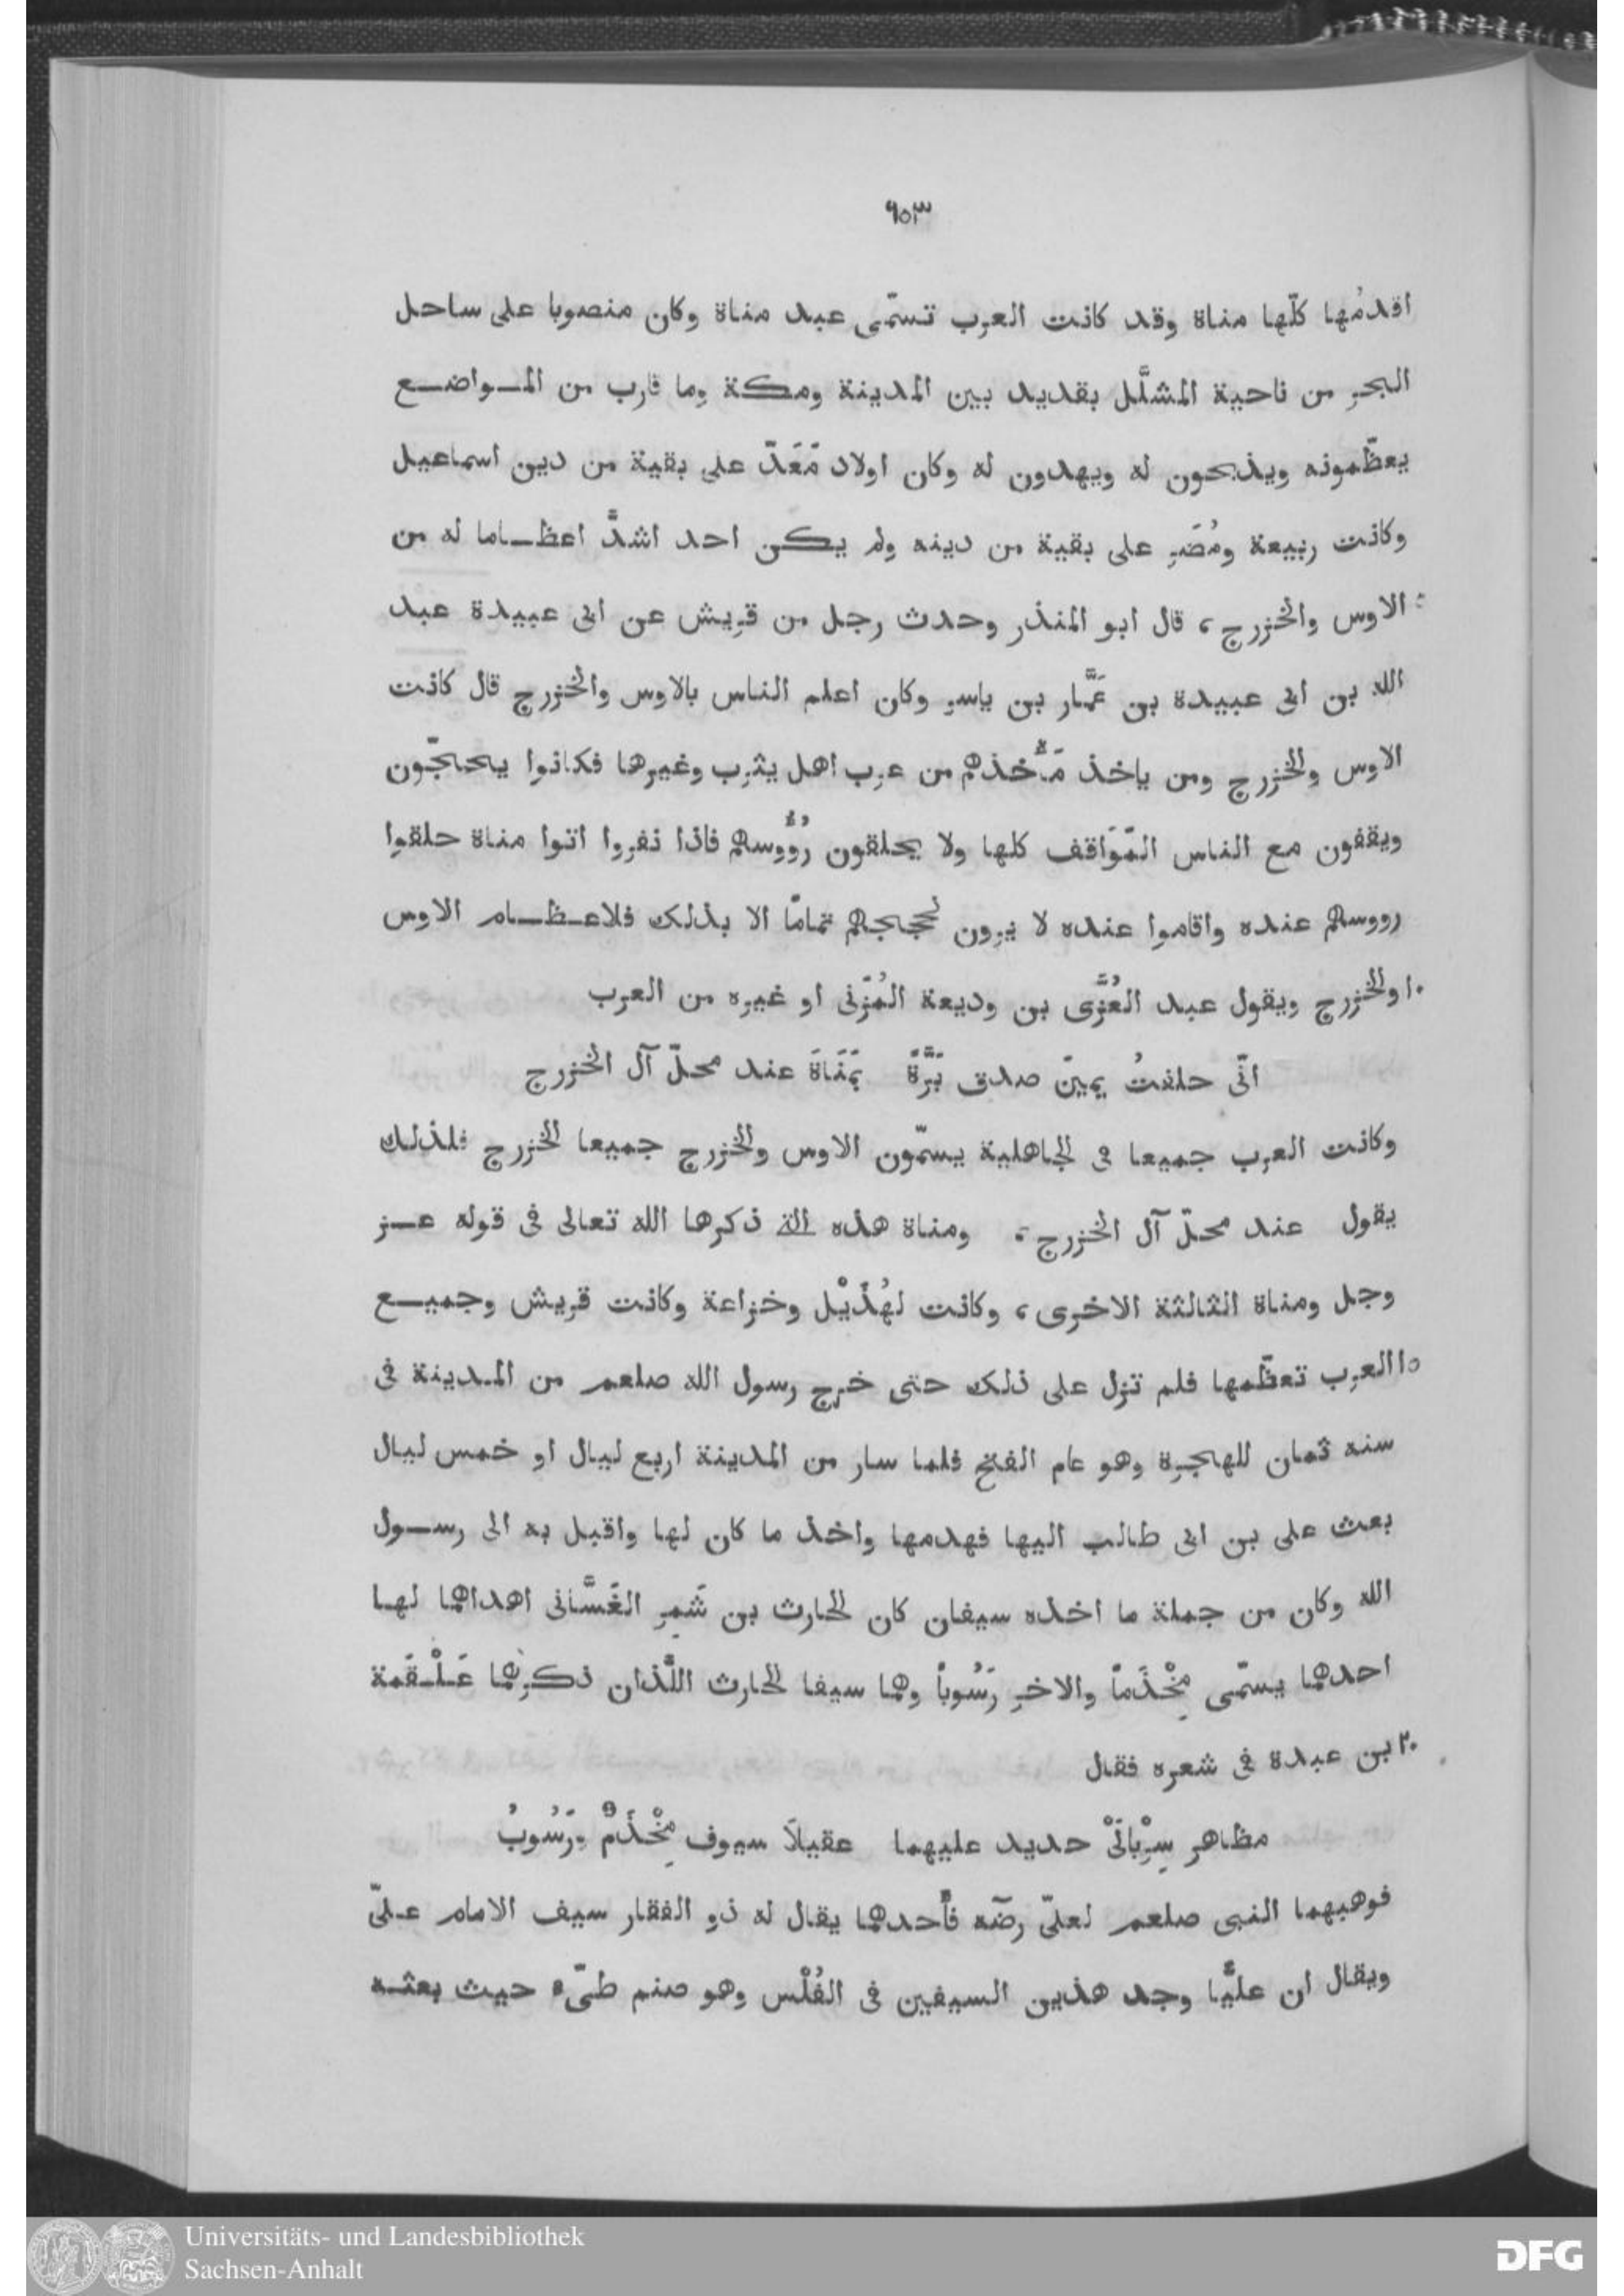 ٦٥٣
اقدمُها كلّها مناة وقد كانت العرب تسمّى عبد مناة وكان منصوبا على ساحل
البحر من ناحية المشلَّل بقديد بين المدينة ومكة وما قارب من المـواضـع
يعظّمونه ويذبحون له ويهدون له وكان اولاد مَعَدّ على بقية من دين اسماعيل
وكانت ربيعة ومُضَر على بقية من دينه ولم يكن احد اشدَّ اعظـاما له من
الاوس والخزرج، قال ابو المنذر وحدث رجل من قريش عن ابى عبيدة عبد
الله بن ابى عبيدة بن عَمَّار بن ياسر وكان اعلم الناس بالاوس والخزرج قال كانت
الاوس والخزرج ومن ياخذ مَأْخذهم من عرب اهل يثرب وغيرها فكانوا يحجّون
ويقفون مع الناس المَوَاقف كلها ولا يحلقون رُؤُوسهم فاذا نفروا اتوا مناة حلقوا
رووسهم عنده واقاموا عنده لا يرون لحجهم تمامًا الا بذلك فلاعـظـام الاوس
١٠ والخزرج ويقول عبد العُزَّى بن وديعة المُزَنى او غيره من العرب
انّى حلفتُ يمينَ صدق بَرَّةً بمَنَاةَ عند محلّ آل الخزرج
وكانت العرب جميعا فى الجاهلية يسمّون الاوس والخزرج جميعا الخزرج فلذلك
يقول عند محلّ آل الخزرج، ومناة هذه التى ذكرها الله تعالى فى قوله عـز
وجل ومناة الثالثة الاخرى، وكانت لهُذَيْل وخزاعة وكانت قريش وجميـع
١٥ العرب تعظّمها فلم تزل على ذلك حتى خرج رسول الله صلعم من المـدينة فى
سنه ثمان للهجرة وهو عام الفتح فلما سار من المدينة اربع ليال او خمس ليال
بعث على بن ابى طالب اليها فهدمها واخذ ما كان لها واقبل به الى رسـول
الله وكان من جملة ما اخذه سيفان كان الحارث بن شَمِر الغَسَّانى اهداهما لهـا
احدهما يسمّى مِخْذَمًا والاخر رَسُوبًا وهما سيفا الحارث اللَّذان ذكرهما عَـلْـقَمة
٢٠ بن عبدة فى شعره فقال
مظاهر سِرْبالَىْ حديد عليهما عقيلَا سيوف مِخْذَمٌ ورَسُوبُ
فوهبهما النبى صلعم لعلىّ رضّه فأحدهما يقال له ذو الفقار سيف الامام عـلىّ
ويقال ان عليًّا وجد هذين السيفين فى الفُلْس وهو صنم طىّء حيث بعثـه
Universitäts- und Landesbibliothek
Sachsen-Anhalt
DFG